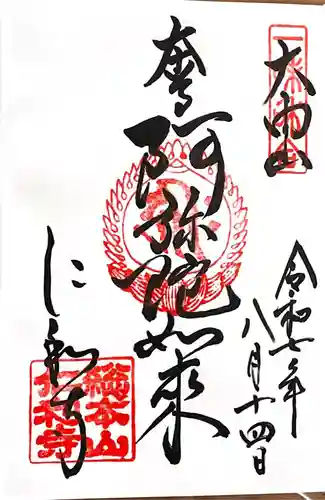 大内山
令和七年
八月十四日
奉
阿弥陀如来
仁和寺
総本山
仁和寺